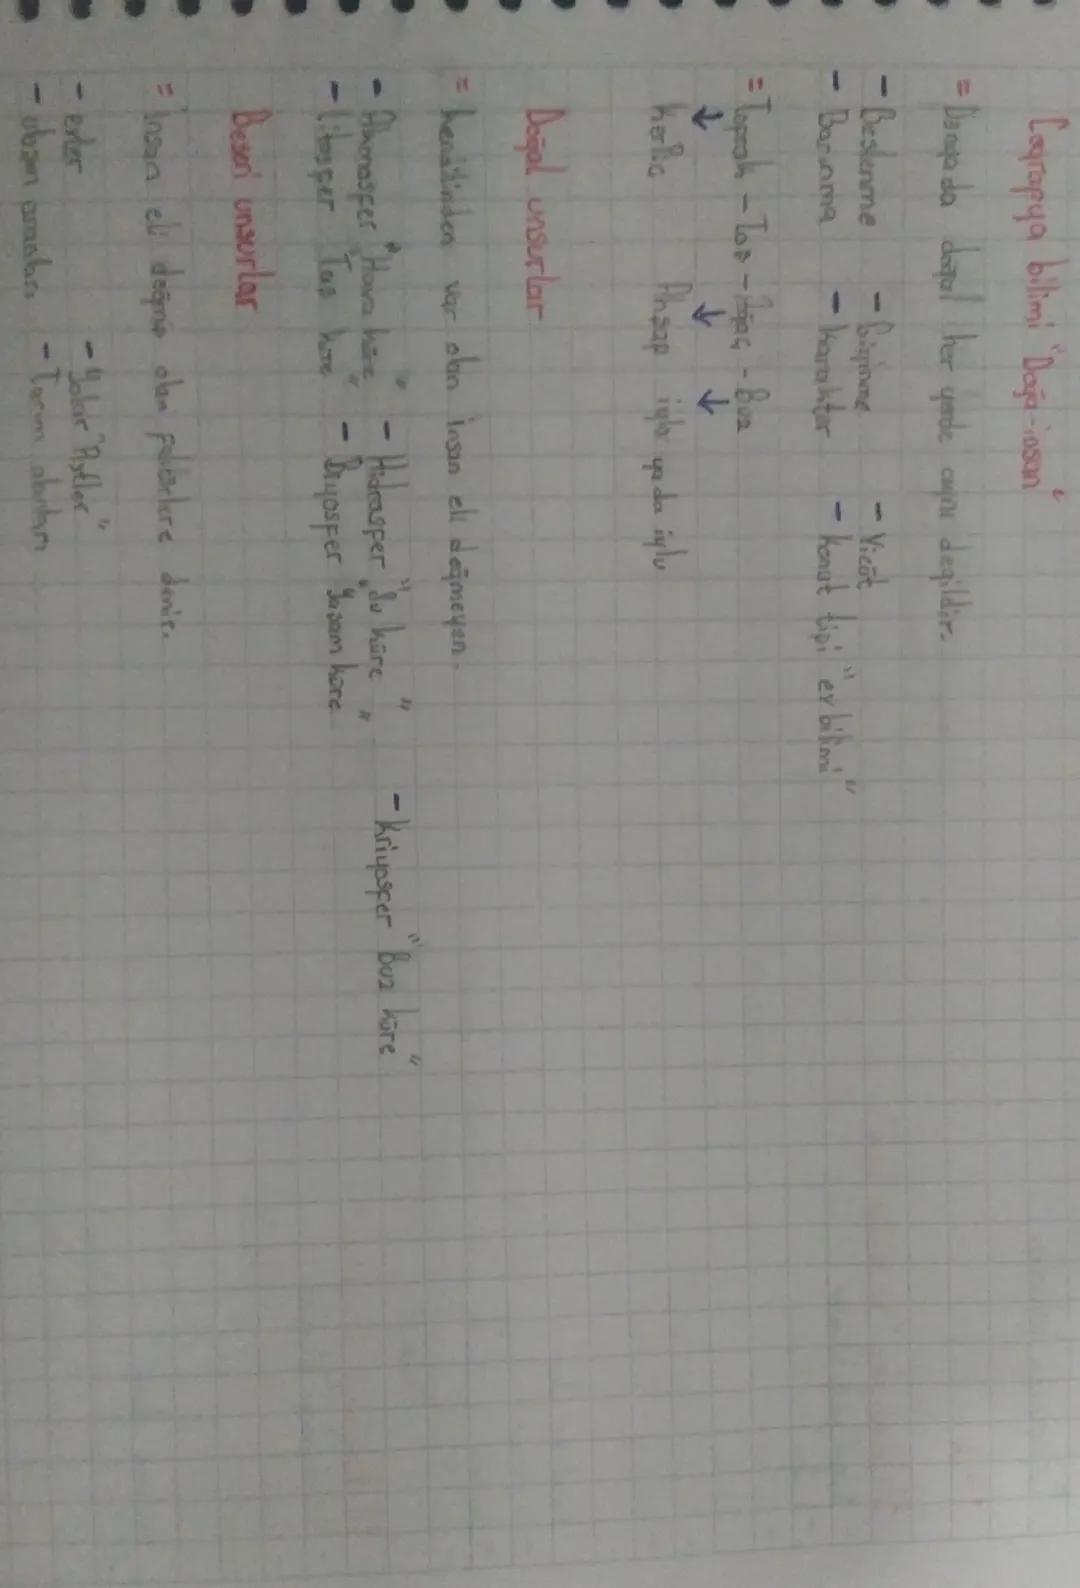 Coğrapya bilimi "Doğa-insan"
= Dünya da doğal her yerde aynı değildir.
- Beslenme - Giyinme - Vicüt
- Barınma - karakter - konut tipi "ev bilimi"
= Toprak - Taş - Ağaç - Buz
↓ ↓ ↓
kerPiç Ahşap iglo ya da iglu
Doğal unsurlar
= kendilinden var olan insan eli değmeyen.
- Atmosfer "Hava küre" - Hidrosfer "Su küre" - Kriyosfer "Buz küre"
- litosfer "Tas küre" - Biyosfer "Yasam küre"
Beseri unsurlar
= insan eli değmiş olan faktörlere denir.
- evler - Yolar "Ayetler"
- ulaşım araçları - Tarım alanları